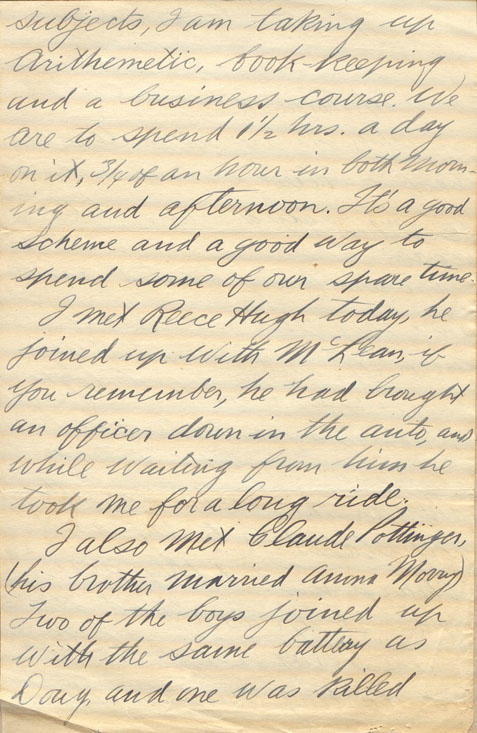 subjects, I am taking up
Arithemetic, book-keeping
and a business course. We
are to spend 1½ hrs. a day
on it, ¾ of an hour in both morn-
ing and afternoon. It's a good
scheme and a good way to
spend some of our spare time.
I met Reece Hugh today, he
joined up with McLean, if
you remember, he had brought
an officer down in the auto, and
while waiting from him he
took me for a long ride.
I also met Claude Pottinger,
(his brother married Anna)
Two of the boys joined up
with the same battery as
Doug, and one was killed